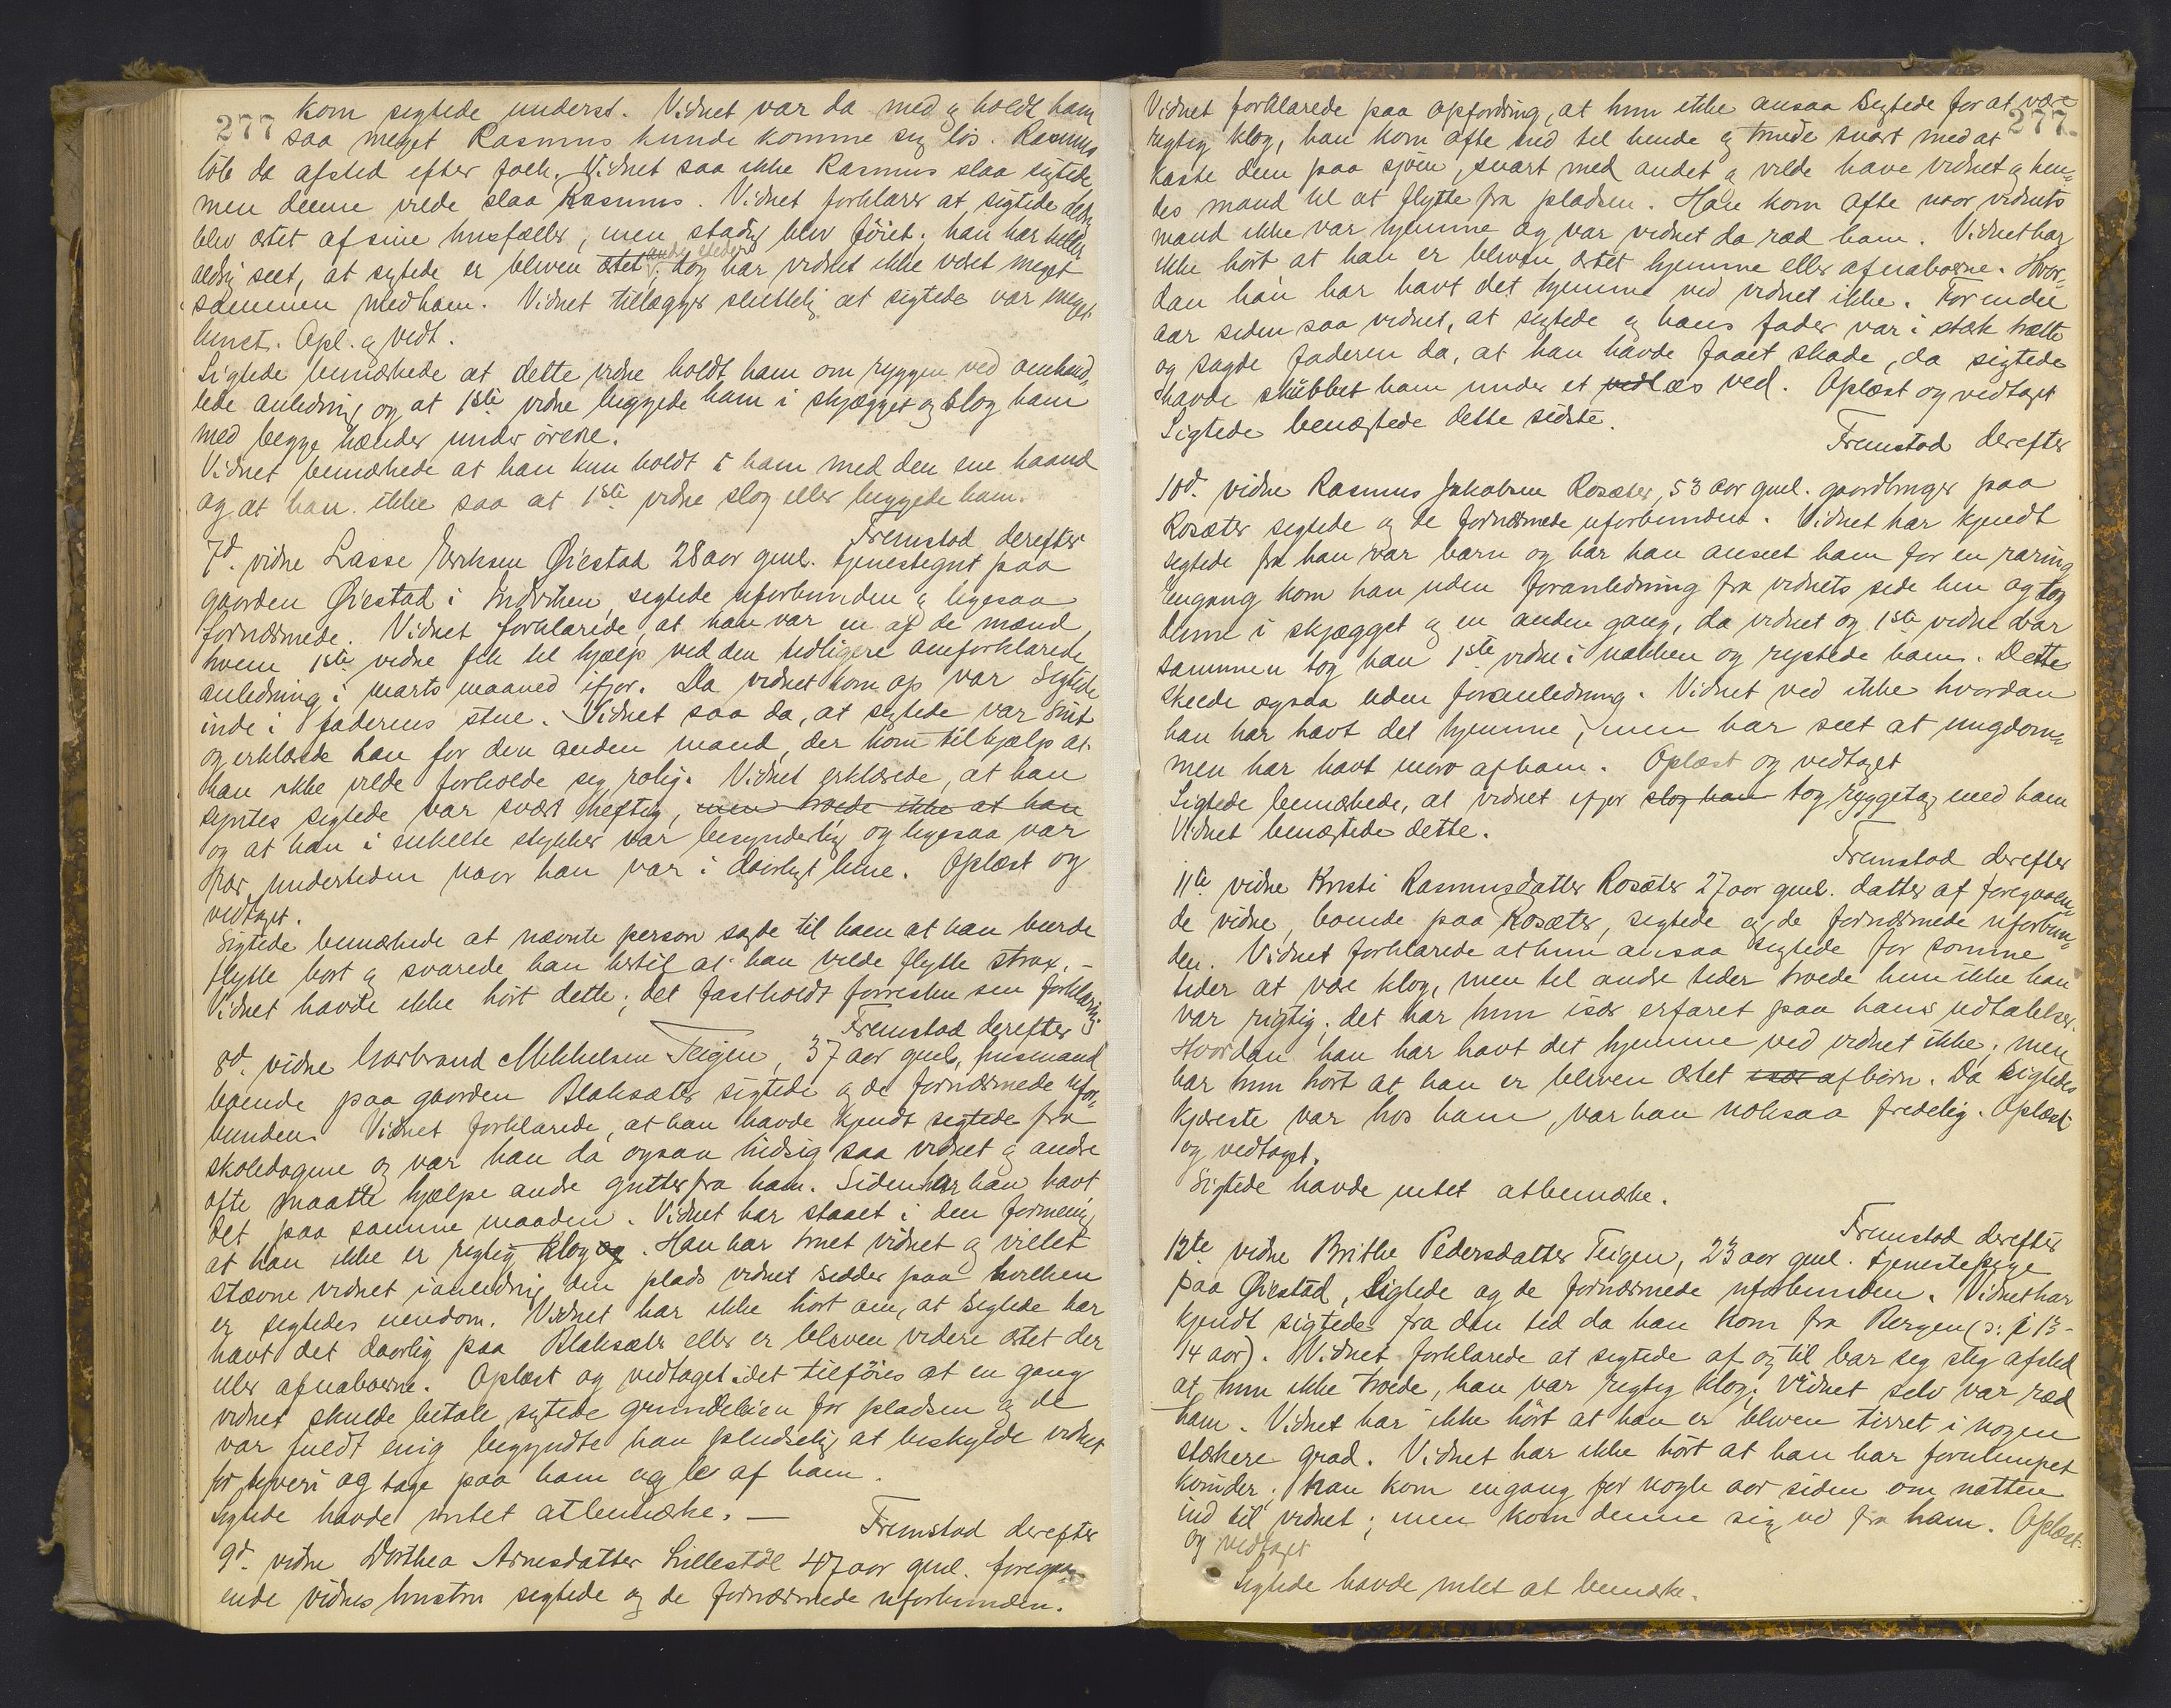 277
kom sigtede underst. Vidnet var da med og holdt ham
saa meget Rasmus kunde komme sig løs. Rasmus
løb da afsted efter folk. Vidnet saa ikke Rasmus slaa sigtede
men denne vilde slaa Rasmus. Vidnet forklarer at sigtede aldrig
blev ertet af sine husfæller, men stadig blev föiet; han har heller
andre steder
aldrig seet, at sigtede er bleven ertet; dog har vidnet ikke været meget
sammen med ham. Vidnet tillægger sluttelig at sigtede var meget
Opl. og vedt.
Sigtede bemærkede at dette vidne holdt ham om ryggen ved omhand-
lede anledning og at 1ste vidne luggede ham i skjægget og slog ham
med begge hænder under ørene.
Vidnet bemærkede at han kun holdt i ham med den ene haand
og at han ikke saa at 1ste vidne slog eller luggede ham.
Fremstod derefter
7d. vidne Lasse Eriksen Øiestad 28 aar gml. tjenestegut paa
gaarden Øiestad i Indviken, sigtede uforbunden og ligesaa
fornærmede. Vidnet forklarede, at han var en af de mænd,
hvem 1ste vidne fik til hjælp ved den tidligere omforklarede
anledning i marts maaned ifjor. Da vidnet kom op var Sigtede
inde i faderens stue. Vidnet saa da, at sigtede var sint
og erklærede han for den anden mand, der kom til hjælp at
han ikke vilde forholde sig rolig. Vidnet erklærede, at han
syntes sigtede var svært heftig, men troede ikke at han
og at han i enkelte stykker var besynderlig og ligesaa var
rar undertiden naar han var i daarligt lune. Oplæst og
vedtaget.
Sigtede bemærkede at nævnte person sagde til ham at han burde
flytte bort og svarede han hertil at han vilde flytte strax. –
Vidnet havde ikke hørt dette; det fastholdt forresten sin forklaring.
Fremstod derefter
8d. vidne Mikkelsen Teigen, 37 aar gml, husmand
boende paa gaarden Blaksæter sigtede og de fornærmede ufor-
bunden. Vidnet forklarede, at han havde kjendt sigtede fra
skoledagene og var han da ogsaa hidsig saa vidnet og andre
ofte maatte hjælpe andre gutter fra ham. Siden har han havt
det paa samme maaden. Vidnet har staaet i den formening
at han ikke er rigtig klog og. Han har truet vidnet og villet
stævne vidnet i anledning den plads vidnet sidder paa hvilken
er sigtedes eiendom. Vidnet har ikke hørt om, at sigtede har
havt det daarlig paa Blaksæter eller er bleven videre ertet der
eller af naboerne. Oplæst og vedtaget idet tilføres at en gang
vidnet skulde betale sigtede grundleien for pladsen og de
var fuldt enig begyndte han pludselig at beskylde vidnet
for tyveri og tage paa ham og le af ham.
Sigtede havde intet at bemærke. –
Fremstod derefter
9d. vidne Dorthea Arnesdatter Lillestöl 47 aar gml. foregaa-
ende vidnes hustru sigtede og de fornærmede uforbunden.
277.
Vidnet forklarede paa opfordring, at hun ikke ansaa Sigtede for at være
rigtig klog, han kom ofte ind til hende og truede svart med at
kaste dem paa sjøen, svart med andet og vilde have vidnet og hen-
des mand til at flytte fra pladsen. Han kom ofte naar vidnets
mand ikke var hjemme og var vidnet da ræd ham. Vidnet har
ikke hørt at han er bleven ertet hjemme eller af naboerne. Hvor-
dan han har havt det hjemme ved vidnet ikke. For endel
aar siden saa vidnet, at sigtede og hans fader var i stærk trætte
og sagde faderen da, at han havde faaet skade, da sigtede
havde skubbet ham under et ved læs ved. Oplæst og vedtaget
Sigtede benægtede dette sidste.
Fremstod derefter
10d. vidne Rasmus Jakobsen Rosæter, 53 aar gml. gaardbruger paa
Rosæter sigtede og de fornærmede uforbunden. Vidnet har kjendt
sigtede fra han var barn og har han anseet ham for en raring
Engang kom han uden foranledning fra vidnets side hen og tog
denne i skjægget og en anden gang, da vidnet og 1ste vidne var
sammen tog han 1ste vidne i nakken og rystede ham. Dette
skeede ogsaa uden foranledning. Vidnet ved ikke hvordan
han har havt det hjemme; men har seet at ungdom-
men har havt moro af ham. Oplæst og vedtaget
Sigtede bemærkede, at vidnet ifjor slog han tog ryggetag med ham
Vidnet benægtede dette.
Fremstod derefter
11te vidne Kristi Rasmusdatter Rosæter 27 aar gml. datter af foregaaen-
de vidne, boende paa Rosæter, sigtede og de fornærmede uforbun-
den. Vidnet forklarede at hun ansaa sigtede for somme
tider at være klog, men til andre tider troede hun ikke han
var rigtig; det har hun især erfaret paa hans udtalelser.
Hvordan han har havt det hjemme ved vidnet ikke; men
har hun hørt at han er bleven ertet især af børn. Da sigtedes
kjæreste var hos ham, var han noksaa fredelig. Oplæst
og vedtaget.
Sigtede havde intet at bemærke.
Fremstod derefter
12te vidne Brithe Pedersdatter Teigen, 23 aar gml. tjenestepige
paa Øiestad, Sigtede og de fornærmede uforbunden. Vidnet har
kjendt sigtede fra den tid da han kom fra Bergen (ɔ: i 13-
14 aar). Vidnet forklarede at sigtede af og til bar sig slig afsted
at hun ikke troede, han var rigtig klog; vidnet selv var ræd
ham. Vidnet har ikke hørt at han er bleven tirret i nogen
stærkere grad. Vidnet har ikke hørt at han har forulempet
kvinder; han kom engang for nogle aar siden om natten
ind til vidnet; men kom denne sig ud fra ham. Oplæst
og vedtaget
Sigtede havde intet at bemærke.